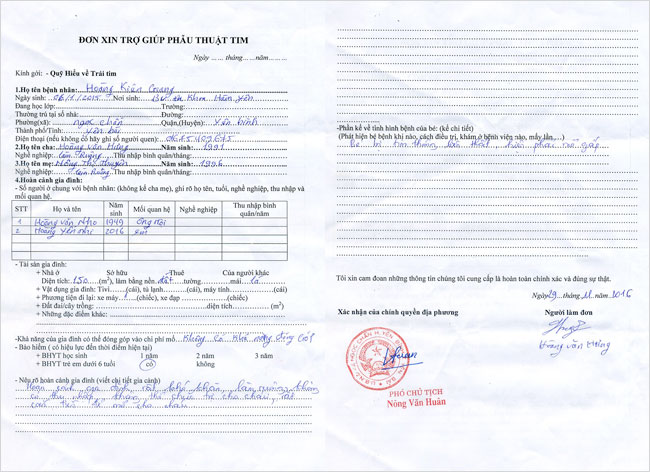 ĐƠN XIN TRỢ GIÚP PHẪU THUẬT TIM
Ngày …… tháng……năm………
Kính gởi: - Quỹ Hiểu về Trái tim
1.Họ tên bệnh nhân: Hoàng Kiên Quang
Ngày sinh: 06/1/2015 Nơi sinh: BV đa khoa
Đang học lớp: Trường:
Thường trú tại số nhà: Đường:
Phường(xã): ngọc chấn Quận,(Huyện): yên bình
Thành phố/Tỉnh: yên bái
Điện thoại (nếu không có hãy ghi số người quen):
2.Họ tên cha: Hoàng Văn Hứng Năm sinh: 1991
Nghề nghiệp: Làm Ruộng Thu nhập bình quân/tháng:
3.Họ tên mẹ: Năm sinh: 1996
Nghề nghiệp: Làm Ruộng Thu nhập bình quân/tháng:
4.Hoàn cảnh gia đình:
- Số người ở chung với bệnh nhân: (không kể cha mẹ), ghi rõ họ tên, tuổi, nghề nghiệp, thu nhập và
mối quan hệ.
STT Họ và tên Năm sinh Mối quan hệ Nghề nghiệp Thu nhập bình quân/năm
1 Hoàng Văn Nho 1949 ông nội
2 Hoàng Yến Nhi 2016 em
- Tài sản gia đình:
+ Nhà ở Sở hữu Thuê Của người khác
Diện tích: 150 (m²), làm bằng nền đất tường mái lá
+ Vật dụng gia đình: Tivi (cái), tủ lạnh (cái), máy vi tính (cái)
+ Phương tiện đi lại: xe máy 1 (chiếc), xe đạp (chiếc)
+ Đất đai/cây trồng: diện tích (m²)
+ Những đặc điểm khác:
-Khả năng của gia đình có thể đóng góp vào chi phí mổ Không có khả năng đóng góp
- Bảo hiểm (có hiệu lực đến thời điểm hiện tại)
+ BHYT học sinh 1 năm 2 năm 3 năm
+ BHYT trẻ em dưới 6 tuổi có không
- Nêu rõ hoàn cảnh gia đình (viết chi tiết gia cảnh)
Hoàn cảnh gia đình rất khó khăn, làm ruộng không
có thu nhập
-Phần kể về tình hình bệnh của bé: (kể chi tiết)
(Phát hiện bệnh khi nào, cách điều trị, khám ở bệnh viện nào, mấy lần,…)
Bé bị tim thông liên thất, cần phải mổ gấp
Tôi xin cam đoan những thông tin chúng tôi cung cấp là hoàn toàn chính xác và đúng sự thật.
Ngày 29 tháng 11 năm 2016
Xác nhận của chính quyền địa phương Người làm đơn
Hoàng Văn Hứng
PHÓ CHỦ TỊCH
Nông Văn Huân